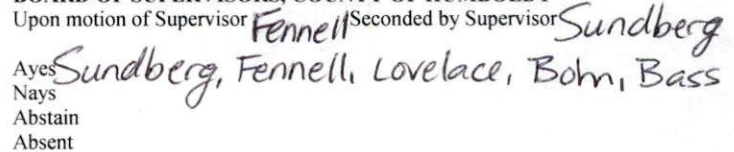 BOARD OF SUPERVISORS, COUNTY OF HUMBOLDT
Upon motion of Supervisor Fennell Seconded by Supervisor Sundberg
Ayes Sundberg, Fennell, Lovelace, Bohn, Bass
Nays
Abstain
Absent